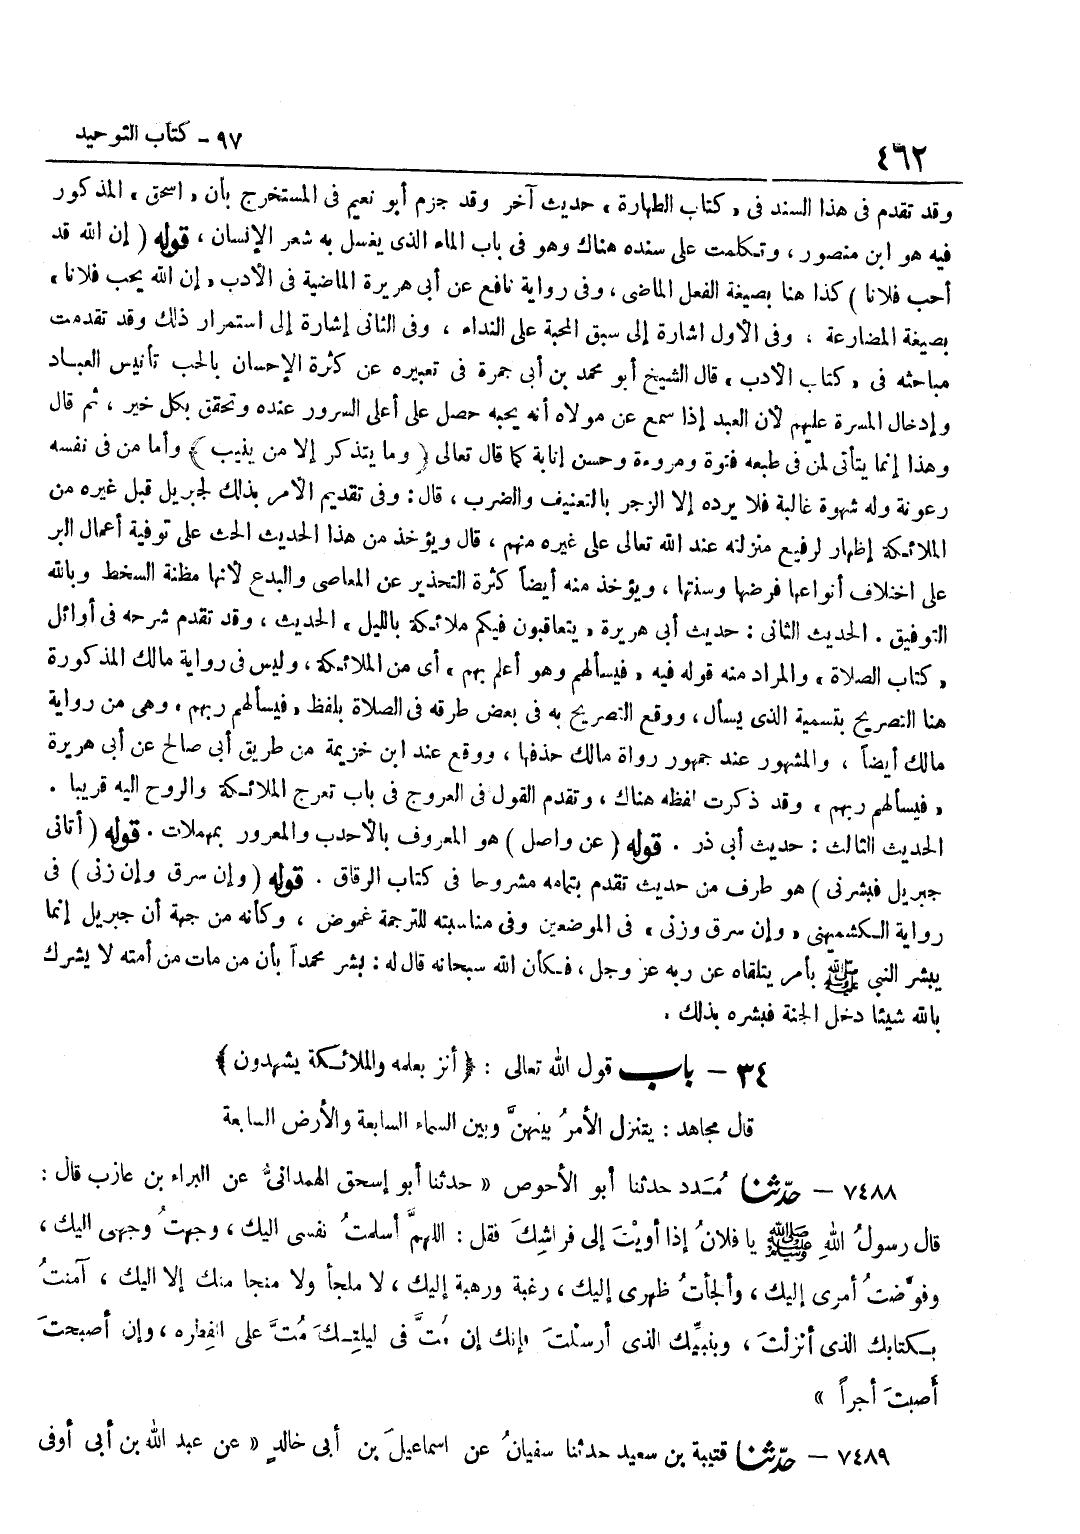 ٤٦٢
٩٧ - كتاب التوحيد
وقد تقدم فى هذا السند فى « كتاب الطهارة » حديث آخر وقد جزم أبو نعيم فى المستخرج بأن « اسحق » المذكور
فيه هو ابن منصور ، وتكلمت على سنده هناك وهو فى باب الماء الذى يغسل به شعر الإنسان ، قوله ( إن الله قد
أحب فلانا ) كذا هنا بصيغة الفعل الماضى ، وفى رواية نافع عن أبى هريرة الماضية فى الأدب « إن الله يحب فلانا »
بصيغة المضارعة ، وفى الأول اشارة إلى سبق المحبة على النداء ، وفى الثانى إشارة إلى استمرار ذلك وقد تقدمت
مباحثه فى « كتاب الأدب » قال الشيخ أبو محمد بن أبى جمرة فى تعبيره عن كثرة الإحسان بالحب تأنيس العباد
وإدخال المسرة عليهم لأن العبد إذا سمع عن مولاه أنه يحبه حصل على أعلى السرور عنده وتحقق بكل خير ، ثم قال
وهذا إنما يتأتى لمن فى طبعه فتوة ومروءة وحسن إنابة كما قال تعالى ﴿ وما يتذكر إلا من ينيب ﴾ وأما من فى نفسه
رعونة وله شهوة غالبة فلا يرده إلا الزجر بالتعنيف والضرب ، قال : وفى تقديم الأمر بذلك لجبريل قبل غيره من
الملائكة إظهار لرفيع منزلته عند الله تعالى على غيره منهم ، قال ويؤخذ من هذا الحديث الحث على توفية أعمال البر
على اختلاف أنواعها فرضها وسنتها ، ويؤخذ منه أيضاً كثرة التحذير عن المعاصى والبدع لأنها مظنة السخط وبالله
التوفيق . الحديث الثانى : حديث أبى هريرة « يتعاقبون فيكم ملائكة بالليل » الحديث ، وقد تقدم شرحه فى أوائل
« كتاب الصلاة » والمراد منه قوله فيه « فيسألهم وهو أعلم بهم » أى من الملائكة ، وليس فى رواية مالك المذكورة
هنا التصريح بتسمية الذى يسأل ، ووقع التصريح به فى بعض طرقه فى الصلاة بلفظ « فيسألهم ربهم » وهى من رواية
مالك أيضاً ، والمشهور عند جمهور رواة مالك حذفها ، ووقع عند ابن خزيمة من طريق أبى صالح عن أبى هريرة
« فيسألهم ربهم » وقد ذكرت لفظه هناك ، وتقدم القول فى العروج فى باب تعرج الملائكة والروح اليه قريبا .
الحديث الثالث : حديث أبى ذر . قوله ( عن واصل ) هو المعروف بالأحدب والمعرور بمهملات . قوله ( أتانى
جبريل فبشرنى ) هو طرف من حديث تقدم بتمامه مشروحا فى كتاب الرقاق . قوله ( وإن سرق وإن زنى ) فى
رواية الكشميهنى « وإن سرق وزنى » فى الموضعين وفى مناسبته للترجمة غموض ، وكأنه من جهة أن جبريل إنما
يبشر النبى ﷺ بأمر يتلقاه عن ربه عز وجل ، فكأن الله سبحانه قال له : بشر محمداً بأن من مات من أمته لا يشرك
بالله شيئا دخل الجنة فبشره بذلك .
٣٤ - باب قول الله تعالى : ﴿ أنزله بعلمه والملائكة يشهدون ﴾
قال مجاهد : يتنزل الأمرُ بينهنَّ وبين السماء السابعة والأرض السابعة
٧٤٨٨ - حدّثنا مُسَدد حدثنا أبو الأحوص « حدثنا أبو إسحق الهمدانىُّ عن البراء بن عازب قال :
قال رسولُ اللهِ ﷺ يا فلانُ إذا أويْتَ إلى فراشِكَ فقل : اللهمَّ أسلمتُ نفسى اليك ، وجهتُ وجهى اليك ،
وفوَّضتُ أمرى إليك ، وألجأتُ ظهرى إليك ، رغبة ورهبة إليك ، لا ملجأ ولا منجا منك إلا اليك ، آمنتُ
بكتابك الذى أنزلْتَ ، وبنبيِّك الذى أرسلْتَ فإنك إن مُتَّ فى ليلتِكَ مُتَّ على الفِطره ، وإن أصبحتَ
أَصبتَ أجراً »
٧٤٨٩ - حدّثنا قتيبة بن سعيد حدثنا سفيانُ عن اسماعيلَ بن أبى خالدٍ « عن عبد الله بن أبى أوفى